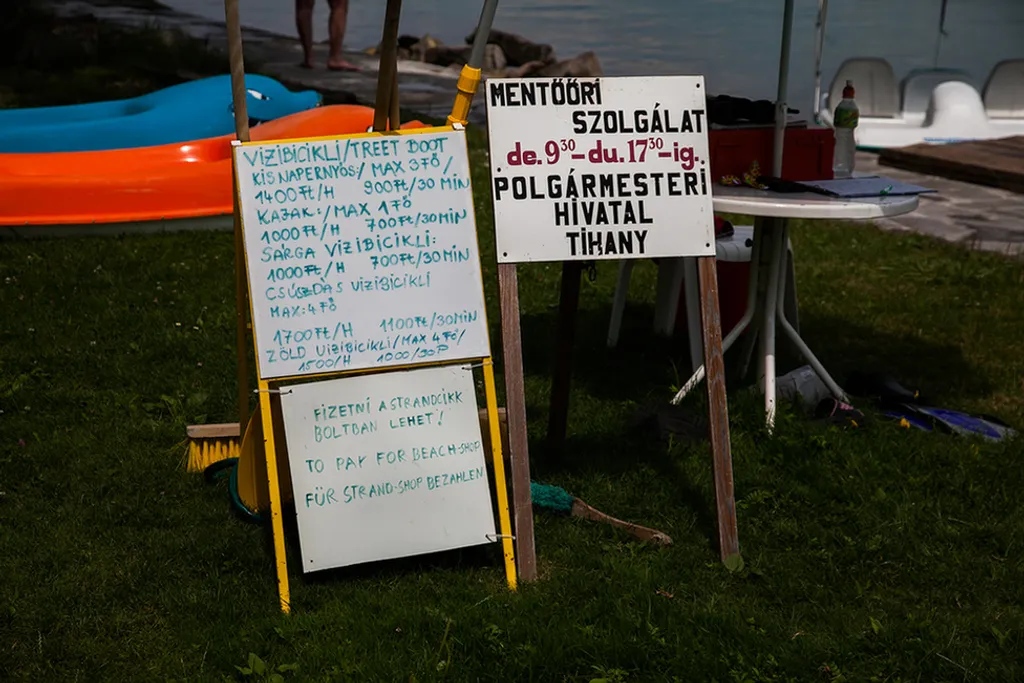 VIZIBICIKLI/TREET BOOT
KIS NAPERNYŐS:/ MAX 3FŐ/
1400Ft/H 900Ft/30 MIN
KAJAK:/MAX 1FŐ
1000Ft/H 700Ft/30MIN
SÁRGA VIZIBICIKLI:
1000Ft/H 700Ft/30MIN
CSÚSZDÁS VIZIBICIKLI
MAX:4FŐ
1700Ft/H 1100Ft/30MIN
ZÖLD VIZIBICIKLI/MAX 4FŐ/
1500/H 1000/30P
FIZETNI A STRANDCIKK
BOLTBAN LEHET!
TO PAY FOR BEACH-SHOP
FÜR STRAND-SHOP BEZAHLEN
MENTŐŐRI
SZOLGÁLAT
de.9³⁰-du.17³⁰-ig.
POLGÁRMESTERI
HIVATAL
TIHANY